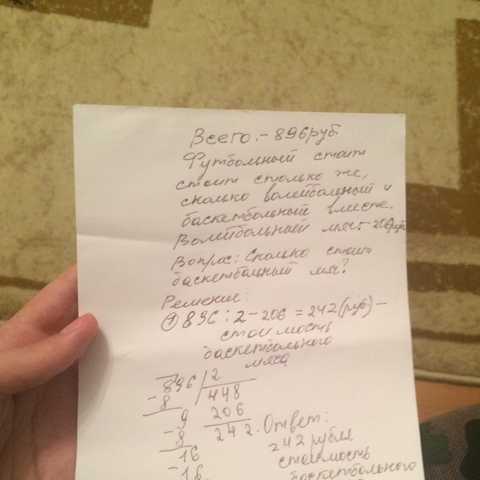 Всего - 896 руб.
Футбольный стоит
стоит столько же,
сколько волейбольный и
баскетбольный вместе.
Волейбольный мяч - 206 руб.
Вопрос: Сколько стоит
баскетбольный мяч?
Решение:
1) 896 : 2 - 206 = 242 (руб) -
стоимость
баскетбольного
мяча
- 896 | 2
8 448
- 9 206
8 242.
- 16
16
Ответ:
242 рубля
стоимость
баскетбольного